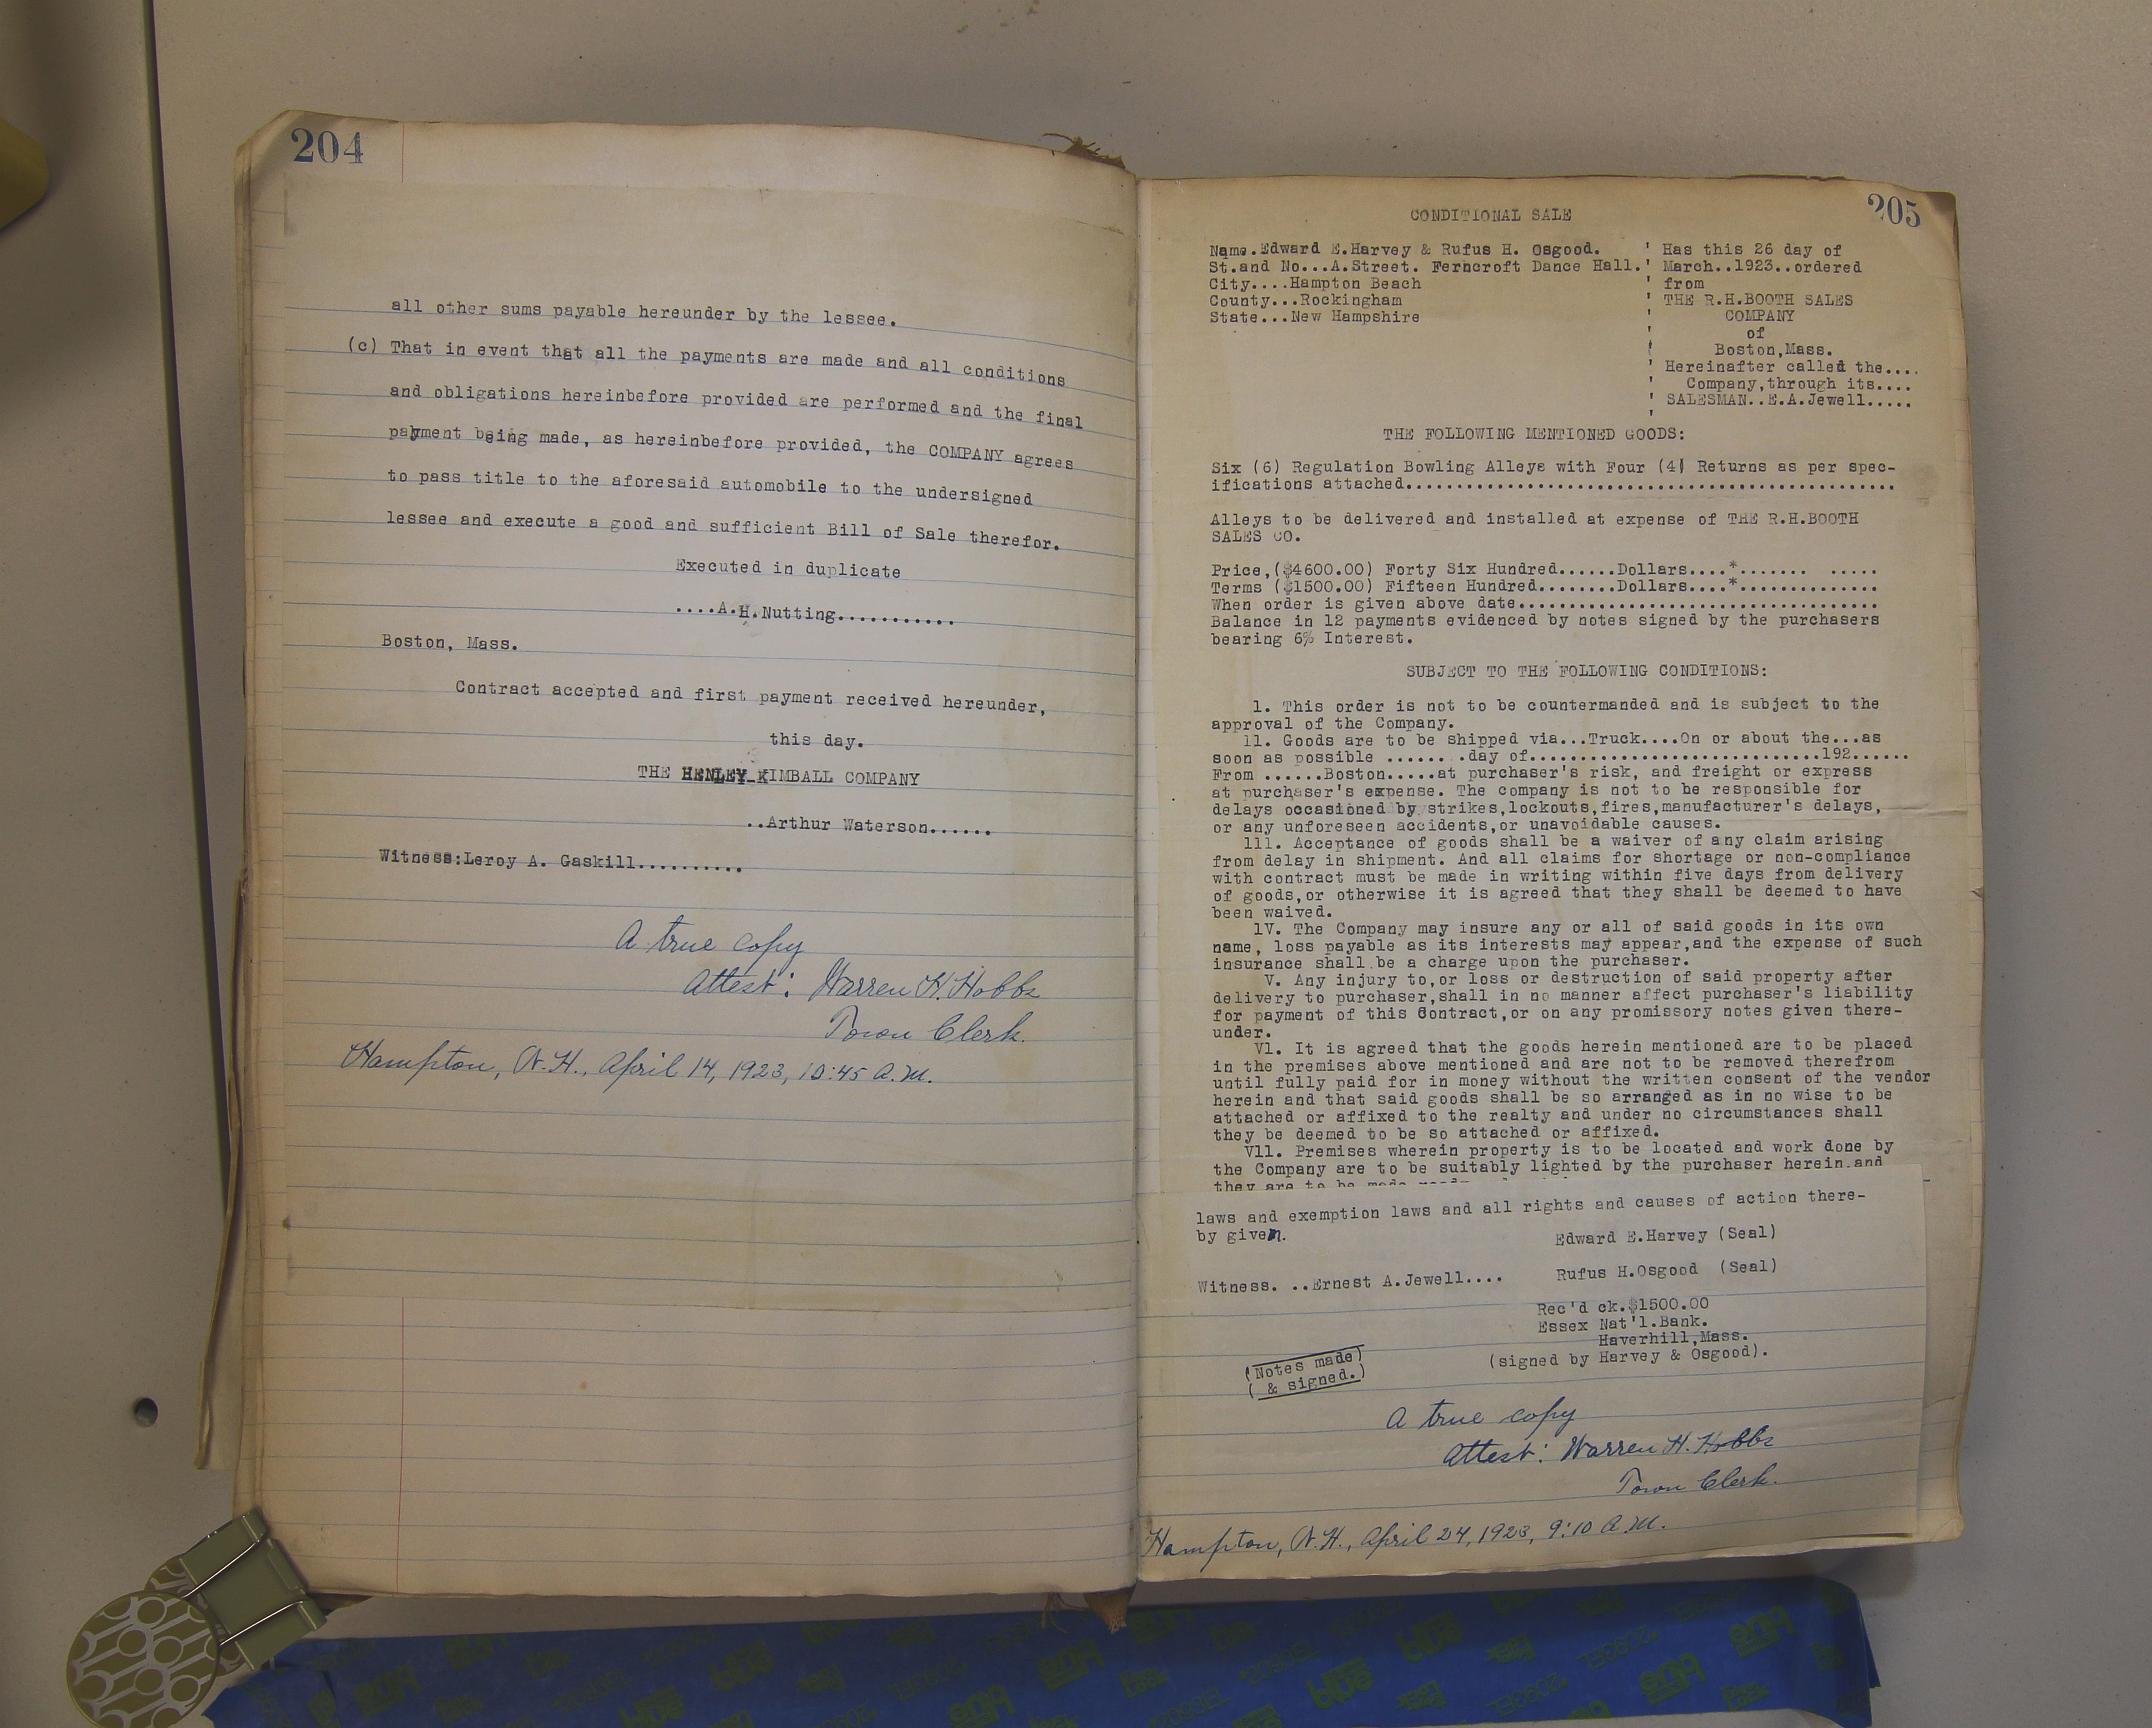 204
all other sums payable hereunder by the lessee.
(c) That in event that all the payments are made and all conditions
and obligations hereinbefore provided are performed and the final
payment being made, as hereinbefore provided, the COMPANY agrees
to pass title to the aforesaid automobile to the undersigned
lessee and execute a good and sufficient Bill of Sale therefor.
Executed in duplicate
....A.H.Nutting............
Boston, Mass.
Contract accepted and first payment received hereunder,
this day.
THE HENLEY-KIMBALL COMPANY
..Arthur Waterson......
Witness:Leroy A. Gaskill..........
A true copy
Attest: Warren H. Hobbs
Town Clerk.
Hampton, N.H., April 14, 1923, 10:45 A.M.
205
CONDITIONAL SALE
Name.Edward E.Harvey & Rufus H. Osgood.
St.and No...A.Street. Ferncroft Dance Hall.
City....Hampton Beach
County...Rockingham
State...New Hampshire
Has this 26 day of
March..1923..ordered
from
THE R.H.BOOTH SALES
COMPANY
of
Boston,Mass.
Hereinafter called the....
Company,through its....
SALESMAN..E.A.Jewell.....
THE FOLLOWING MENTIONED GOODS:
Six (6) Regulation Bowling Alleys with Four (4) Returns as per spec-
ifications attached................................................
Alleys to be delivered and installed at expense of THE R.H.BOOTH
SALES CO.
Price,($4600.00) Forty Six Hundred......Dollars....*....... .....
Terms ($1500.00) Fifteen Hundred........Dollars....*..............
When order is given above date....................................
Balance in 12 payments evidenced by notes signed by the purchasers
bearing 6% Interest.
SUBJECT TO THE FOLLOWING CONDITIONS:
1. This order is not to be countermanded and is subject to the
approval of the Company.
11. Goods are to be shipped via...Truck....On or about the...as
soon as possible ........day of.............................192......
From ......Boston.....at purchaser's risk, and freight or express
at purchaser's expense. The company is not to be responsible for
delays occasioned by strikes,lockouts,fires,manufacturer's delays,
or any unforeseen accidents,or unavoidable causes.
111. Acceptance of goods shall be a waiver of any claim arising
from delay in shipment. And all claims for shortage or non-compliance
with contract must be made in writing within five days from delivery
of goods,or otherwise it is agreed that they shall be deemed to have
been waived.
1V. The Company may insure any or all of said goods in its own
name, loss payable as its interests may appear,and the expense of such
insurance shall be a charge upon the purchaser.
V. Any injury to,or loss or destruction of said property after
delivery to purchaser,shall in no manner affect purchaser's liability
for payment of this Contract,or on any promissory notes given there-
under.
V1. It is agreed that the goods herein mentioned are to be placed
in the premises above mentioned and are not to be removed therefrom
until fully paid for in money without the written consent of the vendor
herein and that said goods shall be so arranged as in no wise to be
attached or affixed to the realty and under no circumstances shall
they be deemed to be so attached or affixed.
V11. Premises wherein property is to be located and work done by
the Company are to be suitably lighted by the purchaser herein.and
they are to be made
laws and exemption laws and all rights and causes of action there-
by given.
Edward E.Harvey (Seal)
Witness. ..Ernest A.Jewell....
Rufus H.Osgood (Seal)
Rec'd ck.$1500.00
Essex Nat'l.Bank.
Haverhill,Mass.
(signed by Harvey & Osgood).
(Notes made)
( & signed.)
A true copy
Attest: Warren H. Hobbs
Town Clerk.
Hampton, N.H., April 24, 1923, 9:10 A.M.